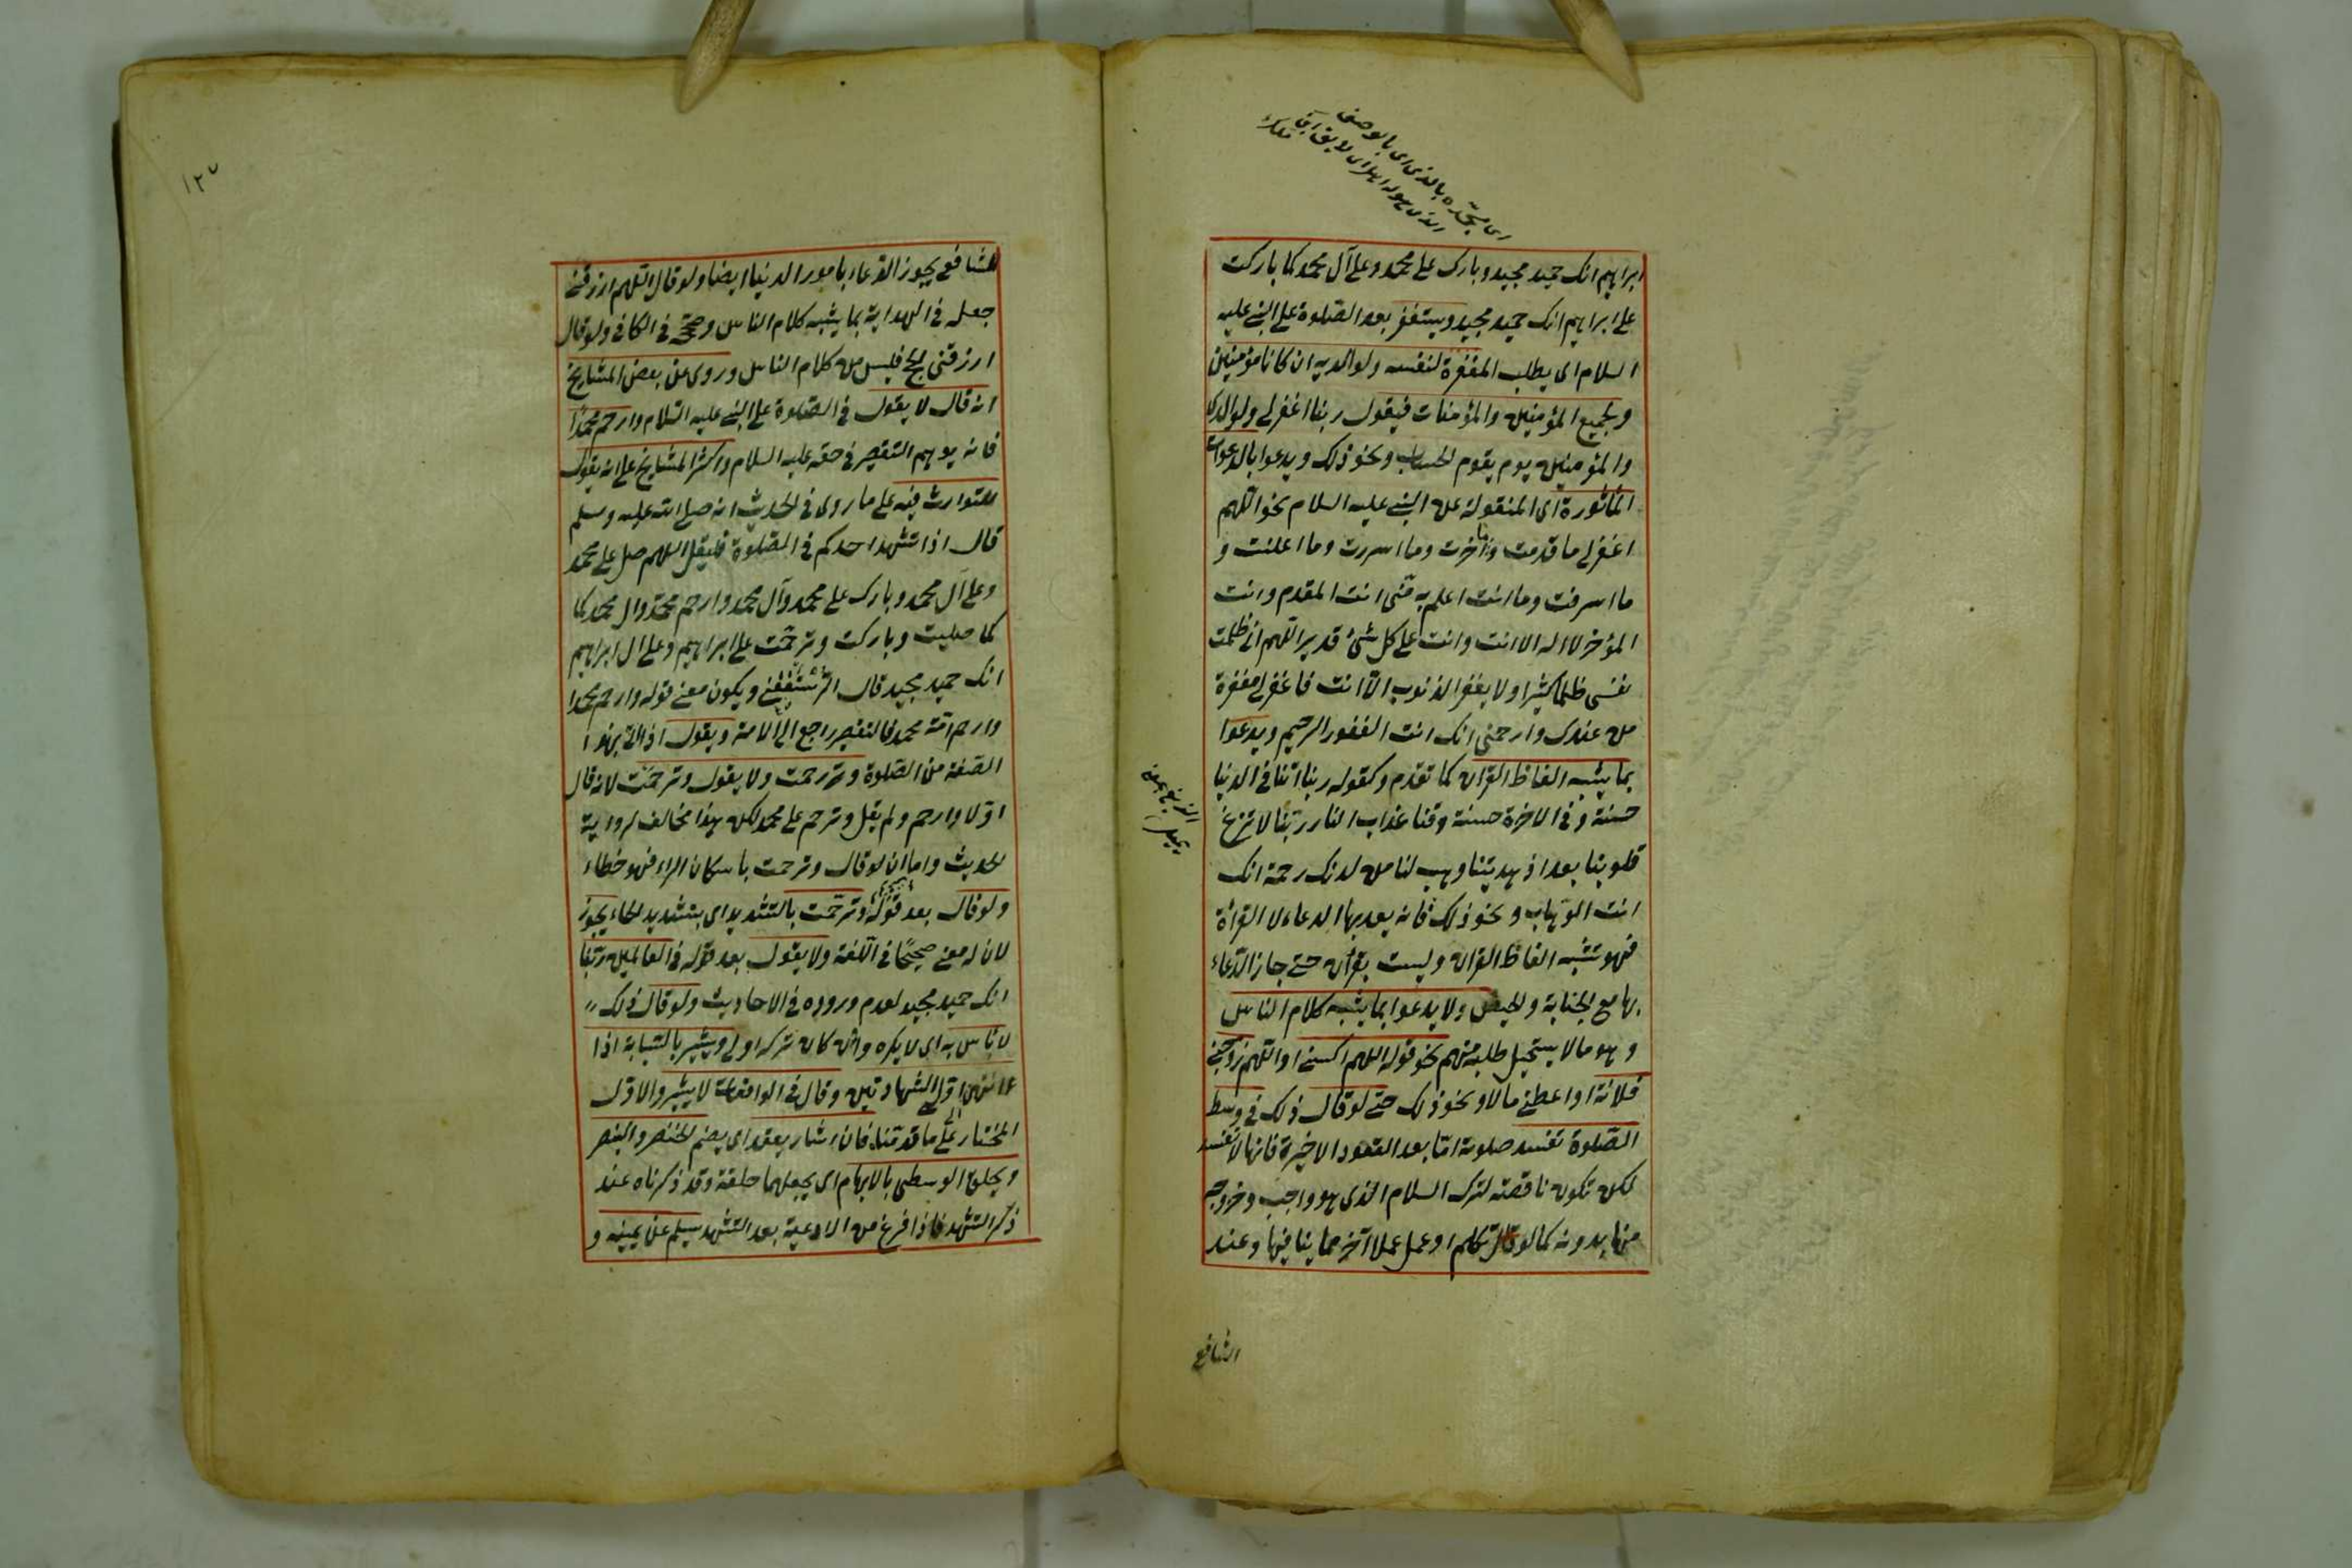 ابراهيم انك حميد مجيد وبارك على محمد وعلى آل محمد كما باركت
على ابراهيم انك حميد مجيد ويستغفر بعد الصلوة على النبى عليه
السلام اى يطلب المغفرة لنفسه ولوالديه ان كانا مؤمنين
ولجميع المؤمنين والمؤمنات فيقول ربنا اغفر لى ولوالدى
وللمؤمنين يوم يقوم الحساب ونحو ذلك ويدعوا بالدعوات
المأثورة اى المنقولة عن النبى عليه السلام نحو اللهم
اغفر لى ما قدمت وما اخرت وما اسررت وما اعلنت و
ما اسرفت وما انت اعلم به منى انت المقدم وانت
المؤخر لا اله الا انت وانت على كل شئ قدير اللهم انى ظلمت
نفسى ظلما كثيرا ولا يغفر الذنوب الا انت فاغفر لى مغفرة
من عندك وارحمنى انك انت الغفور الرحيم ويدعوا
بما يشبه الفاظ القران كما تقدم وكقوله ربنا اتنا فى الدنيا
حسنة وفى الاخرة حسنة وقنا عذاب النار ربنا لا تزغ
قلوبنا بعد اذ هديتنا وهب لنا من لدنك رحمة انك
انت الوهاب ونحو ذلك فانه يعد بها الدعاء لا القرأة
فهو تشبه الفاظ القران وليست بقرأن حتى جاز الدعاء
بها مع الجنابة والحيض ولا يدعوا بما يشبه كلام الناس
وهو ما لا يستحيل طلبه منهم نحو قوله اللهم اكسنى او اللهم زوجنى
فلانة او اعطنى مالا ونحو ذلك حتى لو قال ذلك فى وسط
الصلوة تفسد صلوته اما بعد القعود الاخيرة فانها لا تفسد
لكن تكون ناقصة لترك السلام الذى هو واجب وخروجه
منها بدونه كما لو تكلم او عمل عملا آخر مما ينافيها وعند
الشافعى
الزيغ بمعنى
يميل
١٢٧
الشافعى يجوز الدعاء بامور الدنيا ايضا ولو قال اللهم ارزقنى
جعله فى الهداية بما يشبه كلام الناس وصححه فى الكافى ولو قال
ارزقنى الحج فليس من كلام الناس وروى عن بعض المشايخ
انه قال لا يقول فى الصلوة على النبى عليه السلام وارحم محمدا
فانه يوهم التقصير فى حقه عليه السلام واكثر المشايخ على انه يقول
للتوارث فيه على ما روى فى الحديث انه صلى الله عليه وسلم
قال اذا تشهد احدكم فى الصلوة فليقل اللهم صل على محمد
وعلى آل محمد وبارك على محمد وآل محمد وارحم محمدا وال محمد كما
كما صليت وباركت وترحمت على ابراهيم وعلى ال ابراهيم
انك حميد مجيد قال الرستغفنى ويكون معنى قوله وارحم محمدا
وارحم امة محمد فالتقصير راجع الى الامة ويقول اذا اتى بهذا
الصفة من الصلوة ورحمت ولا يقول وترحمت لانه قال
اولا وارحم ولم يقل وترحم على محمد لكن هذا مخالف لرواية
الحديث واما ان لو قال وترحمت باسكان الراء فهو خطاء
ولو قال بعد قوله وترحمت بالتشديد اى بتشديد الحاء يجوز
لان له معنى صحيحا فى اللغة ولا يقول بعد قوله فى العالمين ربنا
انك حميد مجيد لعدم وروده فى الاحاديث ولو قال ذلك
لا بأس به اى لا يكره وان كان تركه اولى ويشير بالسبابة اذا
انتهى الى اول الشهادتين وقال فى الواقعات لا يشير والاول
المختار على ما قدمناه فان اشار يعقد اى يضم الخنصر والبنصر
ويحلق الوسطى بالابهام اى يجعلهما حلقة وقد ذكرناه عند
ذكر التشهد فاذا فرغ من الادعية بعد التشهد يسلم عن يمينه و